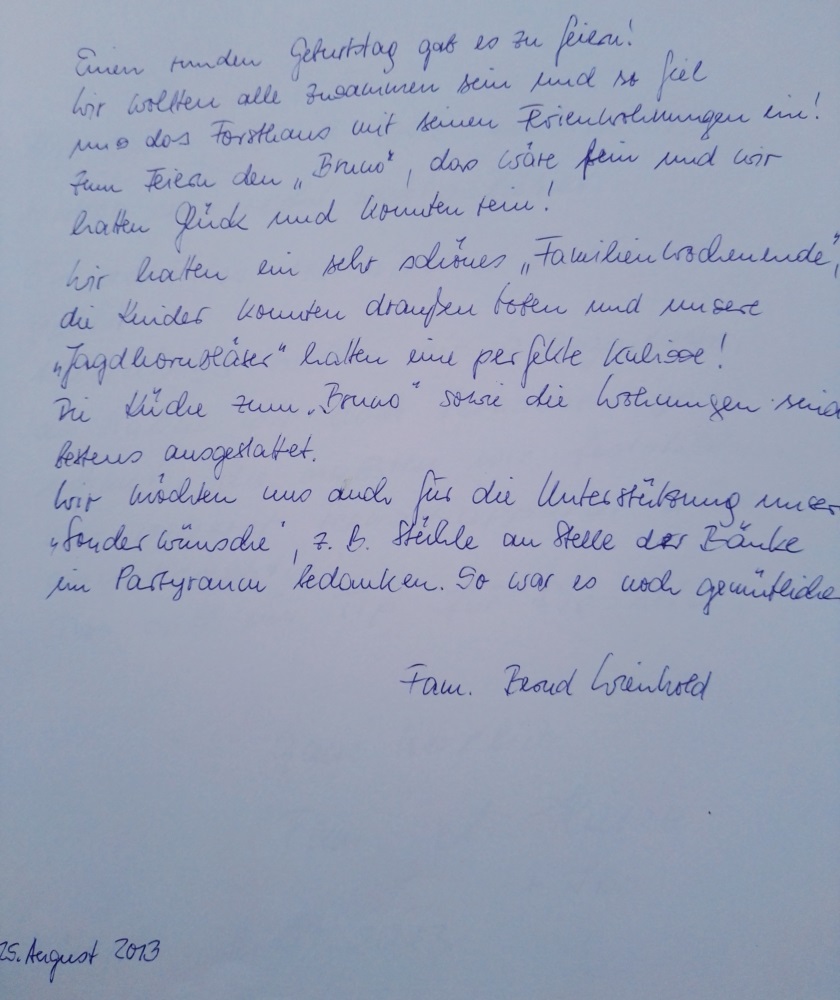 Einen runden Geburtstag gab es zu feiern!
Wir wollten alle zusammen sein und so fiel
uns das Forsthaus mit seinen Ferienwohnungen ein!
Zum Feiern den „Bruno“, das wäre fein und wir
hatten Glück und konnten rein!
Wir hatten ein sehr schönes „Familienwochenende“,
die Kinder konnten draußen toben und unsere
„Jagdhornbläser“ hatten eine perfekte Kulisse!
Die Küche zum „Bruno“ sowie die Wohnungen sind
bestens ausgestattet.
Wir möchten uns auch für die Unterstützung unser
„Sonderwünsche“, z. B. Stühle an Stelle der Bänke
im Partyraum bedanken. So war es noch gemütliche
Fam. Bernd Wienhold
25. August 2013